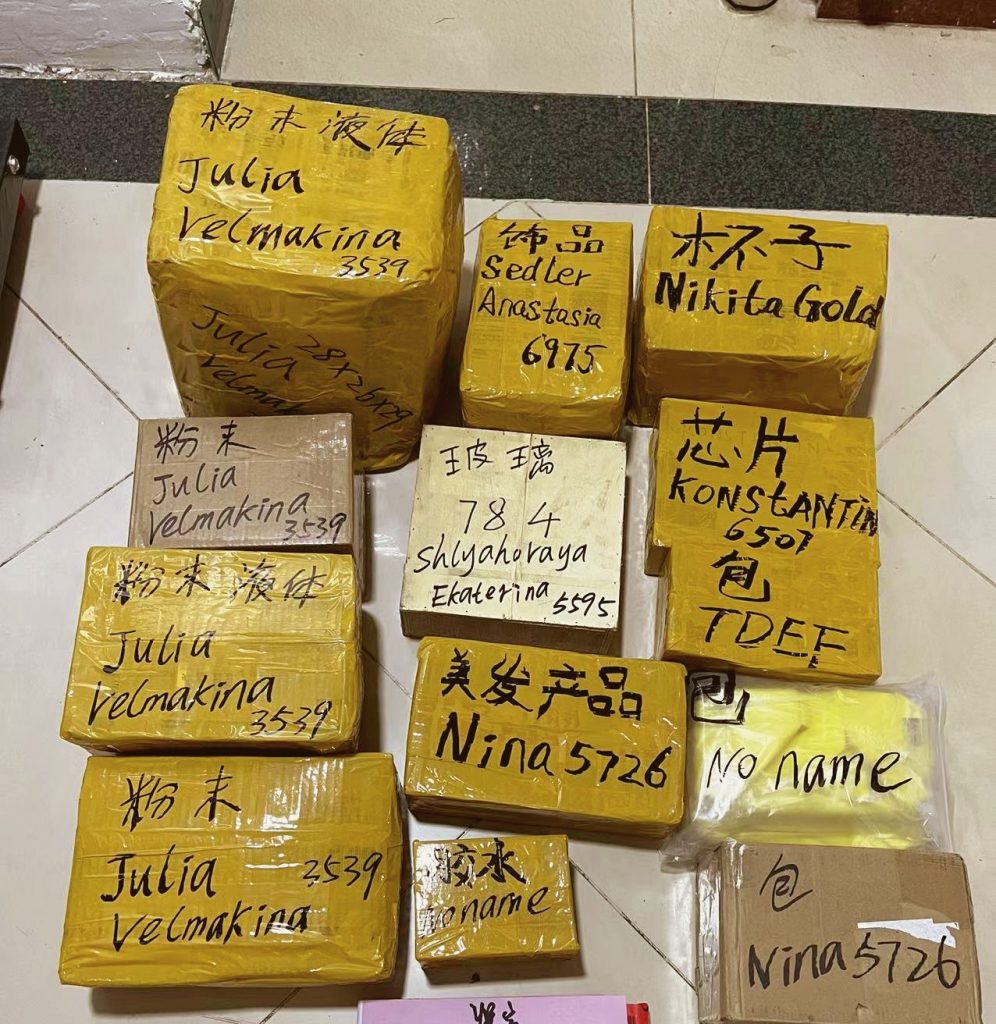 粉末液体
Julia
Velmakina
3539
Julia 28×26×29
饰品
Sedler
Anastasia
6975
杯子
Nikita Gold
粉末
Julia
Velmakina
3539
玻璃
784
Shlyahoraya
Ekaterina 5595
芯片
KONStANTIN
6507
包
TDEF
粉末液体
Julia
Velmakina
3539
美发产品
Nina 5726
包
No name
粉末
Julia 3539
Velmakina
胶水
no name
包
Nina 5726